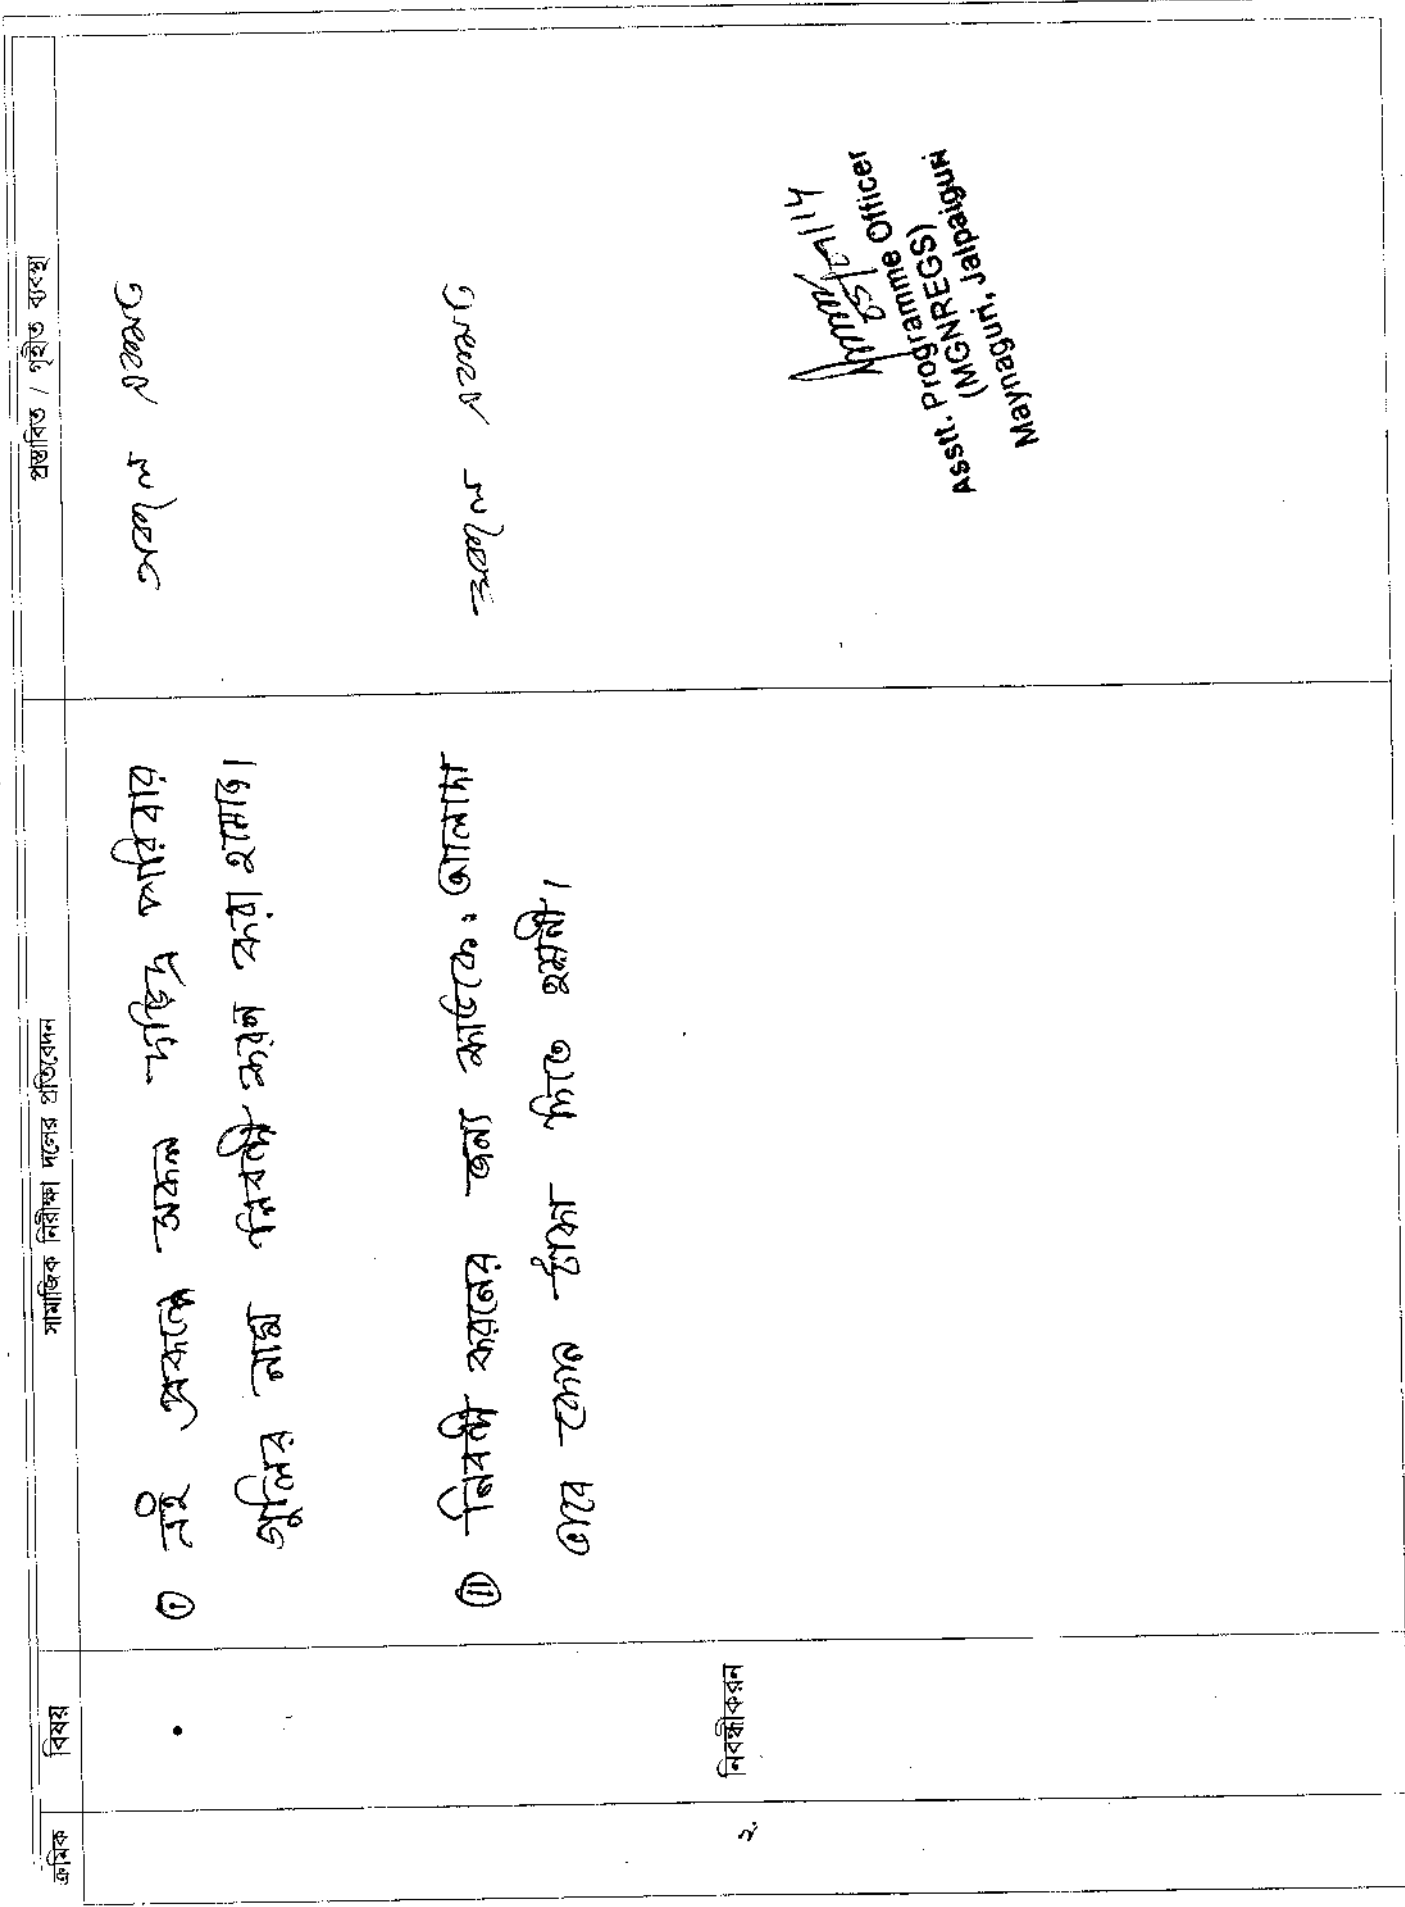 ক্রমিক বিষয় সামাজিক নিরীক্ষা দলের প্রতিবেদন প্রস্তাবিত / গৃহীত ব্যবস্থা
২. নিবন্ধীকরন
(i) এই প্রকল্পে সকল দরিদ্র পরিবার
গুলির নাম নিবন্ধী করন করা হয়েছে।
সকলে একমত
(ii) নিবন্ধী করনের জন্য কাউকে আলাদা
ভাবে কোন টাকা দিতে হয়নী।
সকলে একমত
25/09/14
Asstt. Programme Officer
(MGNREGS)
Maynaguri, Jalpaiguri